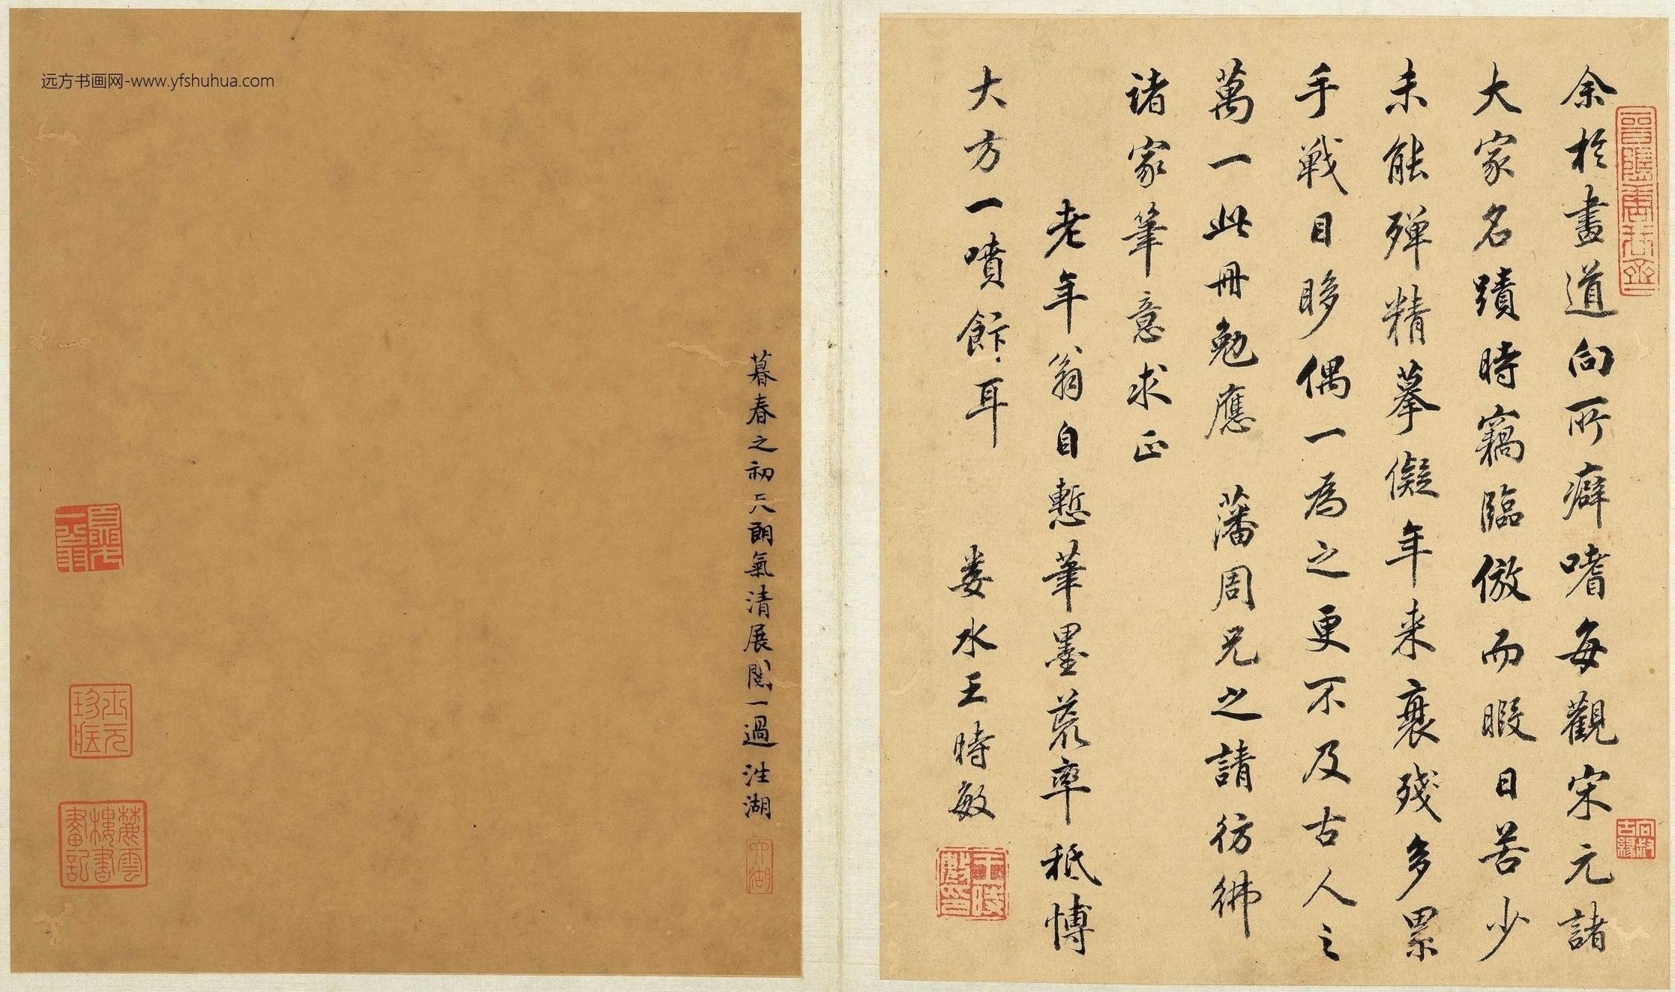 余於畫道向所癖嗜每觀宋元諸
大家名蹟時竊臨倣而暇日苦少
未能殫精摹儗年来衰殘多累
手戰目眵偶一為之更不及古人之
萬一此冊勉應 藩周兄之請彷彿
諸家筆意求正
老年翁自慙筆墨荒率秖博
大方一噴飰耳 婁水王時敏
王時敏印
暮春之初天朗氣清展閲一過 泩湖
士元珍藏
麓雲樓書畫記
远方书画网-www.yfshuhua.com